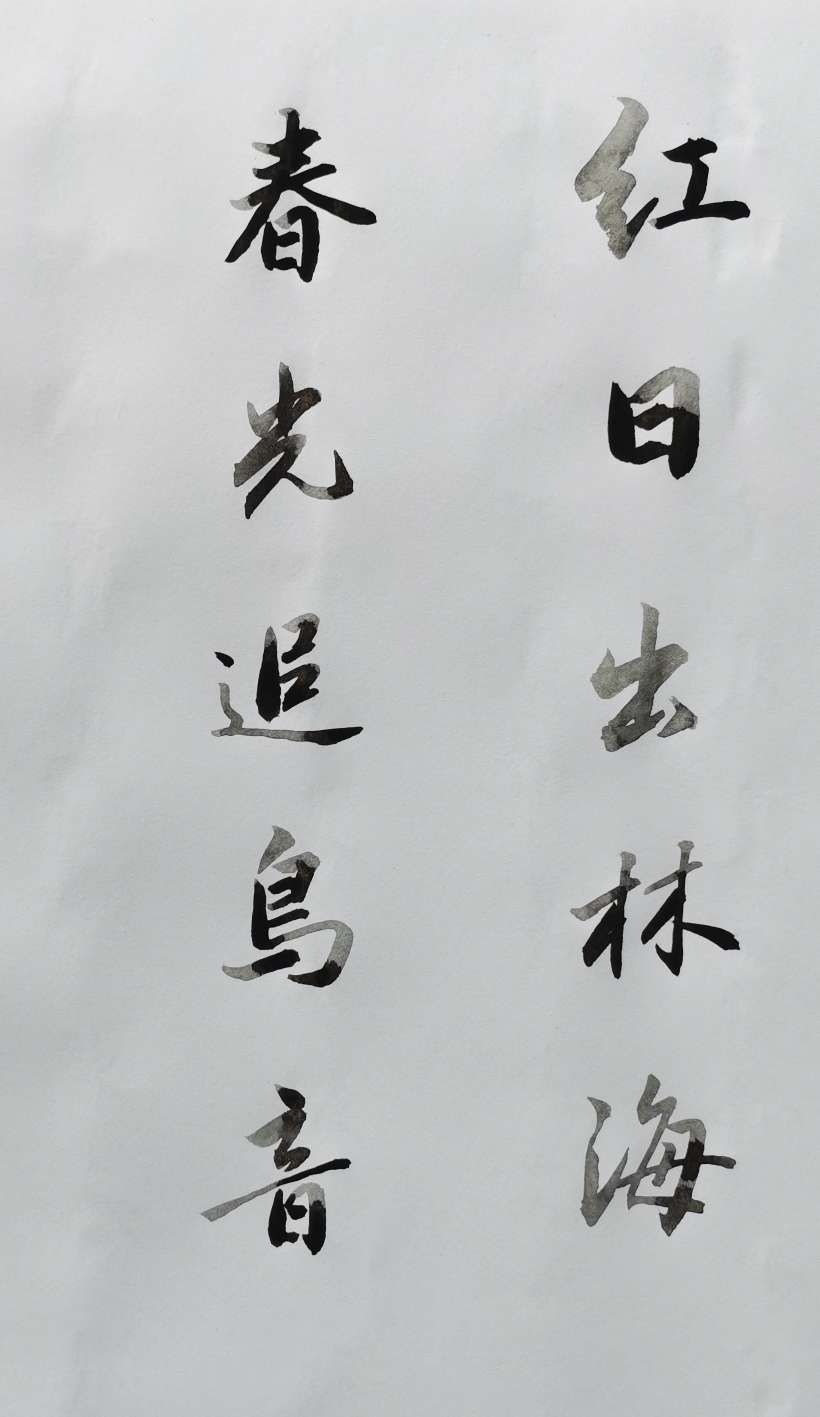 红日出林海
春光追鳥音